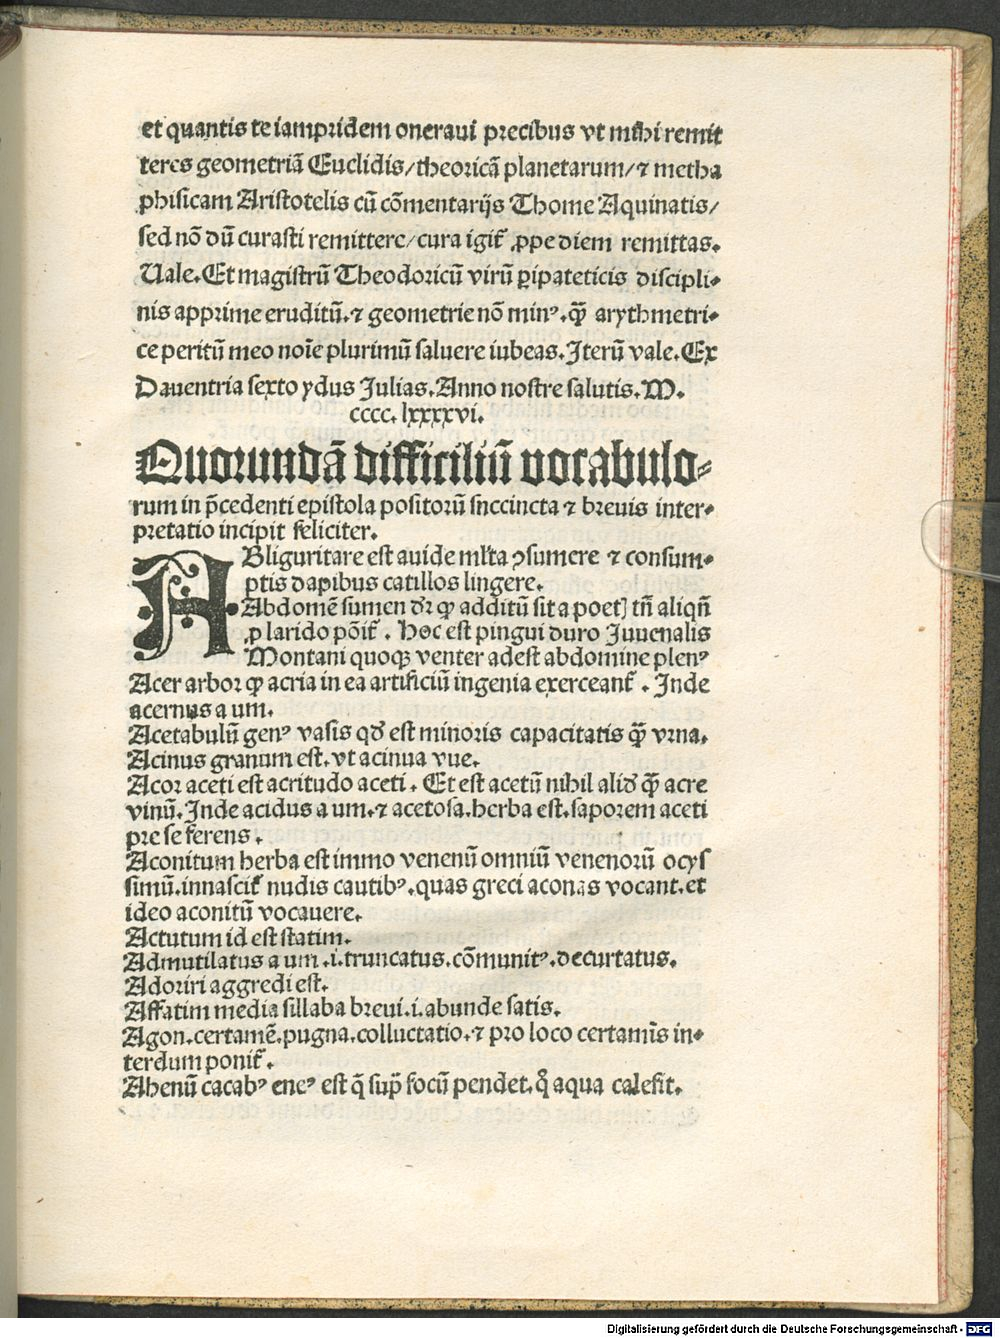 et quantis te iampridem oneraui precibus vt mihi remit
teres geometriā Euclidis/theoricā planetarum/⁊ metha
phisicam Aristotelis cū cōmentarijs Thome Aquinatis/
sed nō dū curasti remittere/cura igit᷑ ꝓpe diem remittas.
Uale.Et magistrū Theodoricū virū ꝑipateticis discipli-
nis apprime eruditū.⁊ geometrie nō minꝰ.q̄ʒ arythmetri-
ce peritū meo noīe plurimū saluere iubeas.Iterū vale.Ex
Dauentria sexto ydus Julias.Anno nostre salutis.M.
cccc.lxxxxvi.
Quorundā difficiliū vocabulo-
rum in p̄cedenti epistola positorū snccincta ⁊ breuis inter-
pretatio incipit feliciter.
ABliguritare est auide ml̓ta ꝯsumere ⁊ consum-
ptis dapibus catillos lingere.
Abdomē sumen dr̄ ꝙ additū sit a poet] tn̄ aliqn̄
ꝓ larido pōit᷑. Hoc est pingui duro Juuenalis
Montani quoqʒ venter adest abdomine plenꝰ
Acer arbor ꝙ acria in ea artificiū ingenia exerceant᷑. Inde
acernus a um.
Acetabulū genꝰ vasis qd̄ est minoris capacitatis q̄ʒ vrna.
Acinus granum est.vt acinua vue.
Acor aceti est acritudo aceti. Et est acetū nihil alid̄ q̄ʒ acre
vinū.Inde acidus a um.⁊ acetosa.herba est.saporem aceti
pre se ferens.
Aconitum herba est immo venenū omniū venenorū ocys
simū.innascit᷑ nudis cautibꝰ.quas greci aconas vocant.et
ideo aconitū vocauere.
Actutum id est statim.
Admutilatus a um.i.truncatus.cōmunitꝰ.decurtatus.
Adoriri aggredi est.
Affatim media sillaba breui.i.abunde satis.
Agon.certamē.pugna.colluctatio.⁊ pro loco certamīs in-
terdum ponit᷑.
Ahenū cacabꝰ eneꝰ est q̄ sup̄ focū pendet.q̊ aqua calefit.
Digitalisierung gefördert durch die Deutsche Forschungsgemeinschaft - DFG